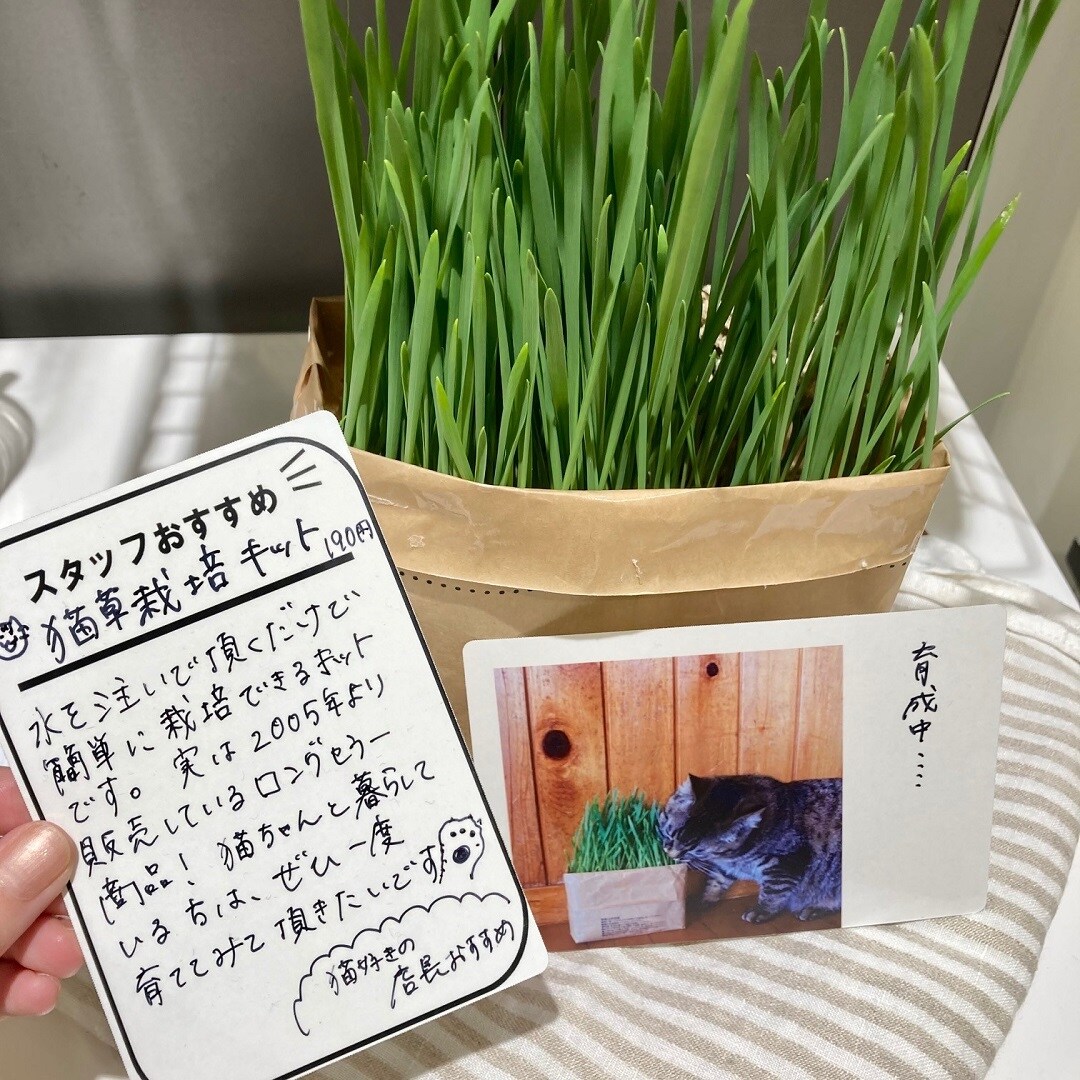 スタッフおすすめ
猫草栽培キット190円
水を注いで頂くだけで
簡単に栽培できるキット
です。実は2005年より
販売しているロングセラー
商品！猫ちゃんと暮らして
いる方は、ぜひ一度
育ててみて頂きたいです
猫好きの
店長おすすめ
育成中....